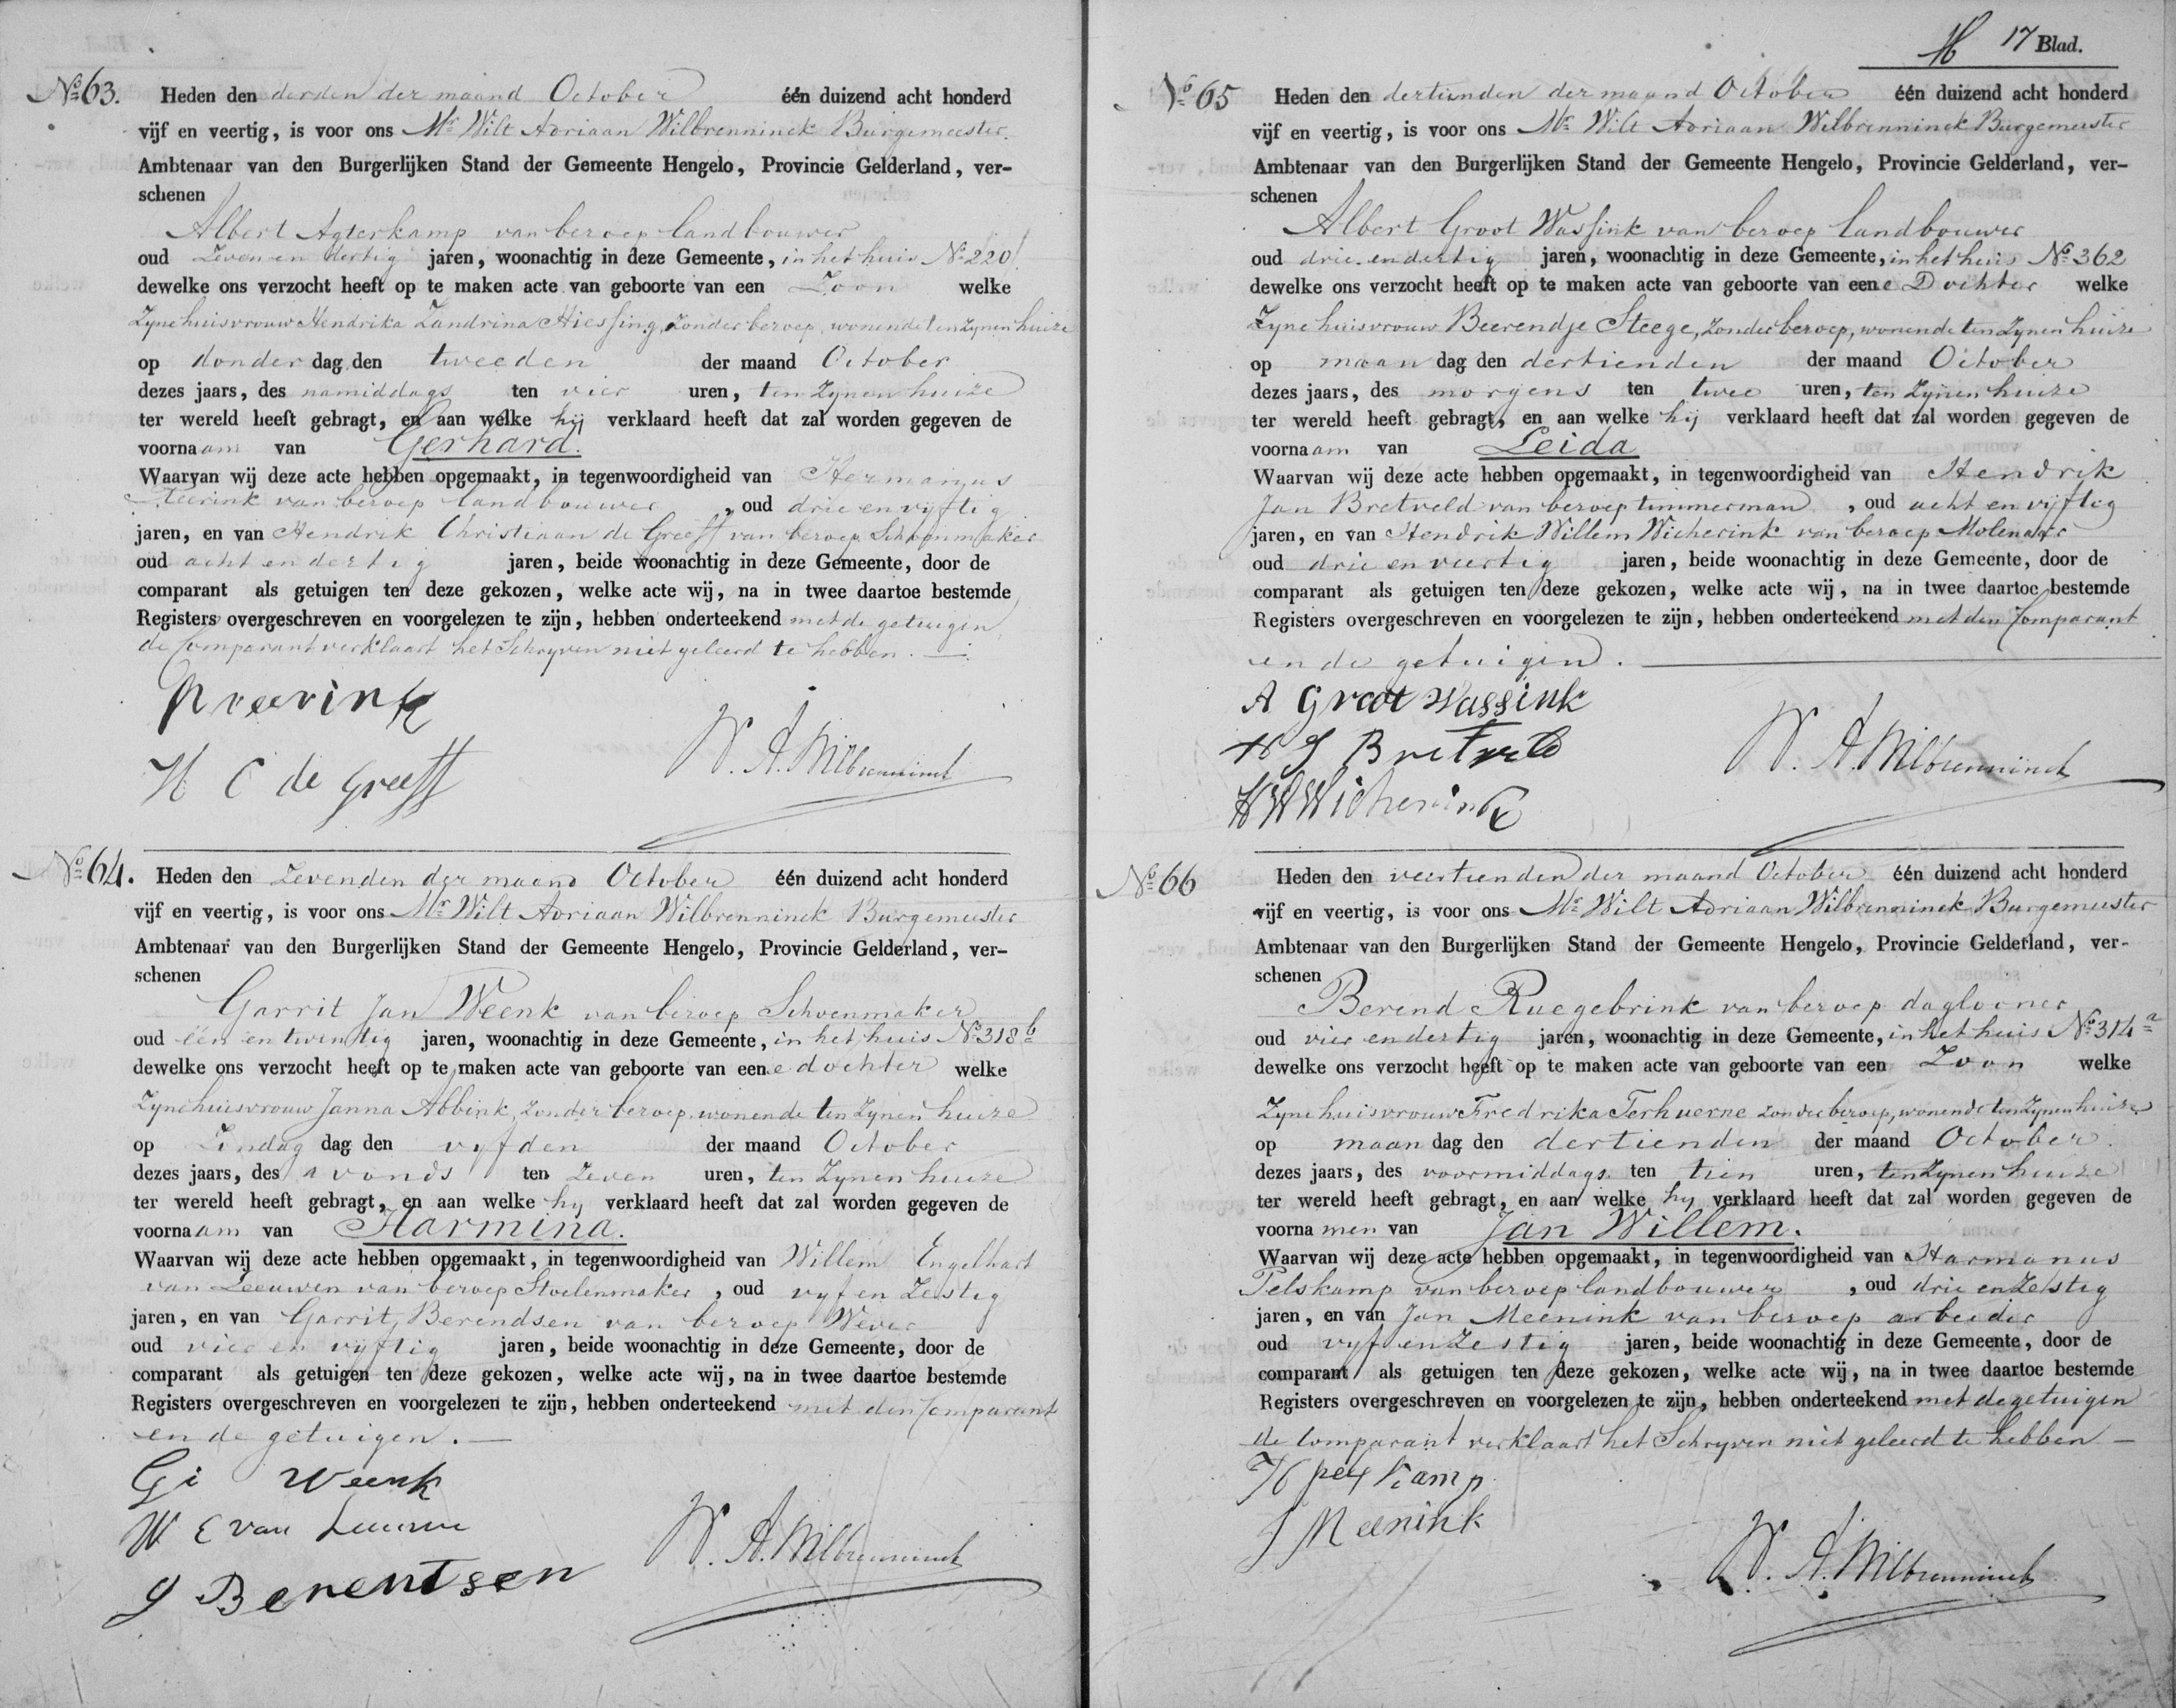 No 63. Heden den derden der maand October één duizend acht honderd
vijf en veertig, is voor ons Mr Wilt Adriaan Wilbrenninck Burgemeester
Ambtenaar van den Burgerlijken Stand der Gemeente Hengelo, Provincie Gelderland, ver-
schenen
Albert Agterkamp van beroep landbouwer
oud Zeven en dertig jaren, woonachtig in deze Gemeente, in het huis No 220
dewelke ons verzocht heeft op te maken acte van geboorte van een Zoon welke
Zyne huisvrouw Hendrika Zandrina Hiessing, Zonder beroep, wonende ten Zynen huize
op donder dag den tweeden der maand October
dezes jaars, des namiddags ten vier uren, ten Zynen huize
ter wereld heeft gebragt, en aan welke hij verklaard heeft dat zal worden gegeven de
voornaam van Gerhard.
Waarvan wij deze acte hebben opgemaakt, in tegenwoordigheid van Hermanus
van beroep landbouwer, oud drie en vyftig
jaren, en van Hendrik Christiaan de Greeff van beroep Schoenmaker
oud acht en dertig jaren, beide woonachtig in deze Gemeente, door de
comparant als getuigen ten deze gekozen, welke acte wij, na in twee daartoe bestemde
Registers overgeschreven en voorgelezen te zijn, hebben onderteekend met de getuigen
de Comparant verklaart het Schryven niet geleerd te hebben.
H C de Greeff
W. A. Wilbrenninck
No 64. Heden den Zevenden der maand October één duizend acht honderd
vijf en veertig, is voor ons Mr Wilt Adriaan Wilbrenninck Burgemeester
Ambtenaar van den Burgerlijken Stand der Gemeente Hengelo, Provincie Gelderland, ver-
schenen
Garrit Jan Weenk van beroep Schoenmaker
oud één en twintig jaren, woonachtig in deze Gemeente, in het huis No 318 b
dewelke ons verzocht heeft op te maken acte van geboorte van eene dochter welke
Zyne huisvrouw Janna Abbink, Zonder beroep, wonende ten Zynen huize
op Zondag dag den vyfden der maand October
dezes jaars, des avonds ten Zeven uren, ten Zynen huize
ter wereld heeft gebragt, en aan welke hy verklaard heeft dat zal worden gegeven de
voornaam van Harmina.
Waarvan wij deze acte hebben opgemaakt, in tegenwoordigheid van Willem Engelhart
van Leeuwen van beroep Stoelenmaker, oud vyf en Zestig
jaren, en van Garrit Berendsen van beroep Wever
oud vier en vyftig jaren, beide woonachtig in deze Gemeente, door de
comparant als getuigen ten deze gekozen, welke acte wij, na in twee daartoe bestemde
Registers overgeschreven en voorgelezen te zijn, hebben onderteekend met den Comparant
en de getuigen.
Weenk
W E van Leeuwen
G Berentsen
W. A. Wilbrenninck
17 Blad.
No 65 Heden den dertienden der maand October één duizend acht honderd
vijf en veertig, is voor ons Mr Wilt Adriaan Wilbrenninck Burgemeester
Ambtenaar van den Burgerlijken Stand der Gemeente Hengelo, Provincie Gelderland, ver-
schenen
Albert Groot Wassink van beroep landbouwer
oud drie en dertig jaren, woonachtig in deze Gemeente, in het huis No 362
dewelke ons verzocht heeft op te maken acte van geboorte van eene Dochter welke
Zyne huisvrouw Beerendje Steege, Zonder beroep, wonende ten Zynen huize
op maan dag den dertienden der maand October
dezes jaars, des morgens ten twee uren, ten Zynen huize
ter wereld heeft gebragt, en aan welke hij verklaard heeft dat zal worden gegeven de
voornaam van Leida
Waarvan wij deze acte hebben opgemaakt, in tegenwoordigheid van Hendrik
Jan Bretveld van beroep timmerman, oud acht en vyftig
jaren, en van Hendrik Willem Wicherink van beroep Molenaar
oud drie en veertig jaren, beide woonachtig in deze Gemeente, door de
comparant als getuigen ten deze gekozen, welke acte wij, na in twee daartoe bestemde
Registers overgeschreven en voorgelezen te zijn, hebben onderteekend met den Comparant
en de getuigen.
A Groot Wassink
H J Bretveld
H W Wicherink
W. A. Wilbrenninck
No 66 Heden den veertienden der maand October één duizend acht honderd
vijf en veertig, is voor ons Mr Wilt Adriaan Wilbrenninck Burgemeester
Ambtenaar van den Burgerlijken Stand der Gemeente Hengelo, Provincie Gelderland, ver-
schenen
Berend Ruegebrink van beroep daglooner
oud vier en dertig jaren, woonachtig in deze Gemeente, in het huis No 314 a
dewelke ons verzocht heeft op te maken acte van geboorte van een Zoon welke
Zyne huisvrouw Fredrika Terhuerne Zonder beroep, wonende ten Zynen huize
op maan dag den dertienden der maand October
dezes jaars, des voormiddags ten tien uren, ten Zynen huize
ter wereld heeft gebragt, en aan welke hy verklaard heeft dat zal worden gegeven de
voornamen van Jan Willem.
Waarvan wij deze acte hebben opgemaakt, in tegenwoordigheid van Harmanus
Pelskamp van beroep landbouwer, oud drie en Zestig
jaren, en van Jan Meenink van beroep arbeider
oud vyf en Zestig jaren, beide woonachtig in deze Gemeente, door de
comparant als getuigen ten deze gekozen, welke acte wij, na in twee daartoe bestemde
Registers overgeschreven en voorgelezen te zijn, hebben onderteekend met de getuigen
de Comparant verklaart het Schryven niet geleerd te hebben
H pelskamp
J Meenink
W. A. Wilbrenninck